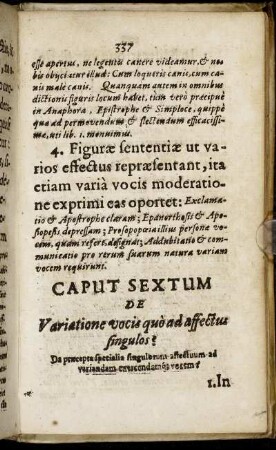 337
esse apertus, ne legentes canere videamur, & no-
bis obyciatur illud: Cum loqueris canis, cum ca-
nis male canis. Quanquam autem in omnibus
dictionis figuris locum habet, tum verò præcipuè
in Anaphora, Epistrophe & Simploce, quippè
quæ ad permovendum & flectendum efficacissi-
mæ, uti lib. 1. monuimus.
4. Figuræ sententiæ ut va-
rios effectus repræsentant, ita
etiam varià vocis moderatio-
ne exprimi eas oportet: Exclama-
tio & Apostrophe claram; Epanorthosis & Apo-
siopesis depressam; Prosopopœia illius personæ vo-
cem, quam refert, assignat; Addubitatio & com-
municatio pro rerum suarum natura variam
vocem requirunt.
CAPUT SEXTUM
DE
Variatione vocis quò ad affectus
singulos?
Da præcepta specialia singulorum affectuum ad
variandam vocem?
1. In